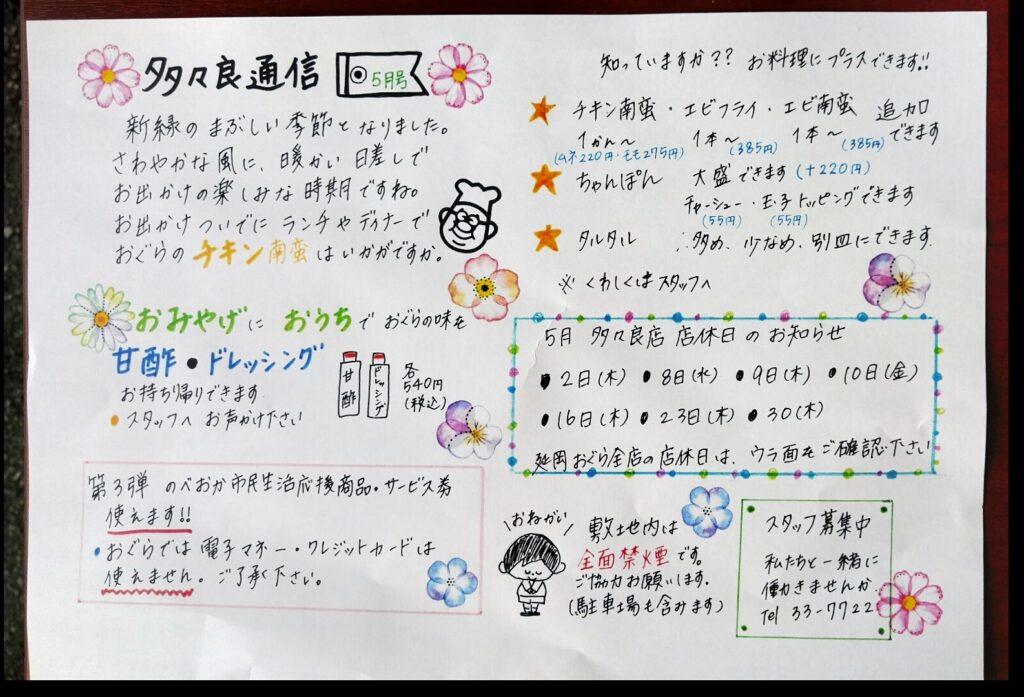 多々良通信
5月号
新緑のまぶしい季節となりました。
さわやかな風に、暖かい日差しで
お出かけの楽しみな時期ですね。
お出かけついでにランチやディナーで
おぐらのチキン南蛮はいかがですか。
おみやげに おうちで おぐらの味を
甘酢・ドレッシング
お持ち帰りできます
・スタッフへ お声かけ下さい
甘酢
ドレッシング
各
540円
(税込)
第3弾 のべおか市民生活応援商品・サービス券
使えます!!
・おぐらでは 電子マネー・クレジットカードは
使えません。ご了承下さい。
知っていますか?? お料理にプラスできます!!
★ チキン南蛮・エビフライ・エビ南蛮 追加
1かん〜 1本〜 1本〜 できます
(ムネ220円・モモ275円) (385円) (385円)
★ ちゃんぽん 大盛できます (+220円)
チャーシュー・玉子トッピングできます
(55円) (55円)
★ タルタル 多め、少なめ、別皿にできます.
※ くわしくはスタッフへ
5月 多々良店 店休日のお知らせ
・2日(木) ・8日(水) ・9日(木) ・10日(金)
・16日(木) ・23日(木) ・30(木)
延岡おぐら全店の店休日は、ウラ面をご確認下さい
\おねがい/
敷地内は
全面禁煙です。
ご協力お願いします.
(駐車場も含みます)
スタッフ募集中
私たちと一緒に
働きませんか
Tel 33-7722